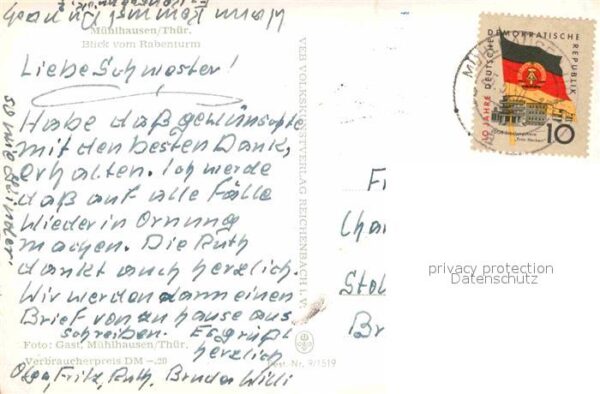 Wann kommst Du nach
Mühlhausen/Thür.
Blick vom Rabenturm
Liebe Schwester!
Habe daß gewünschte
mit den besten Dank,
erhalten. Ich werde
daß auf alle Fälle
wieder in Ornung
machen. Die Ruth
dankt auch herzlich.
Wir werden dann einen
Brief von zu hause aus
schreiben. Es grüßt
herzlich
Foto: Gast, Mühlhausen/Thür.
Verbraucherpreis DM -.20
Olga, Fritz, Ruth, Bruder Willi
VEB VOLKSKUNSTVERLAG REICHENBACH I. V.
Best.-Nr. 9/1519
10 JAHRE DEUTSCHE DEMOKRATISCHE REPUBLIK
10
Fr
Char
Stol
Br
privacy protection
Datenschutz